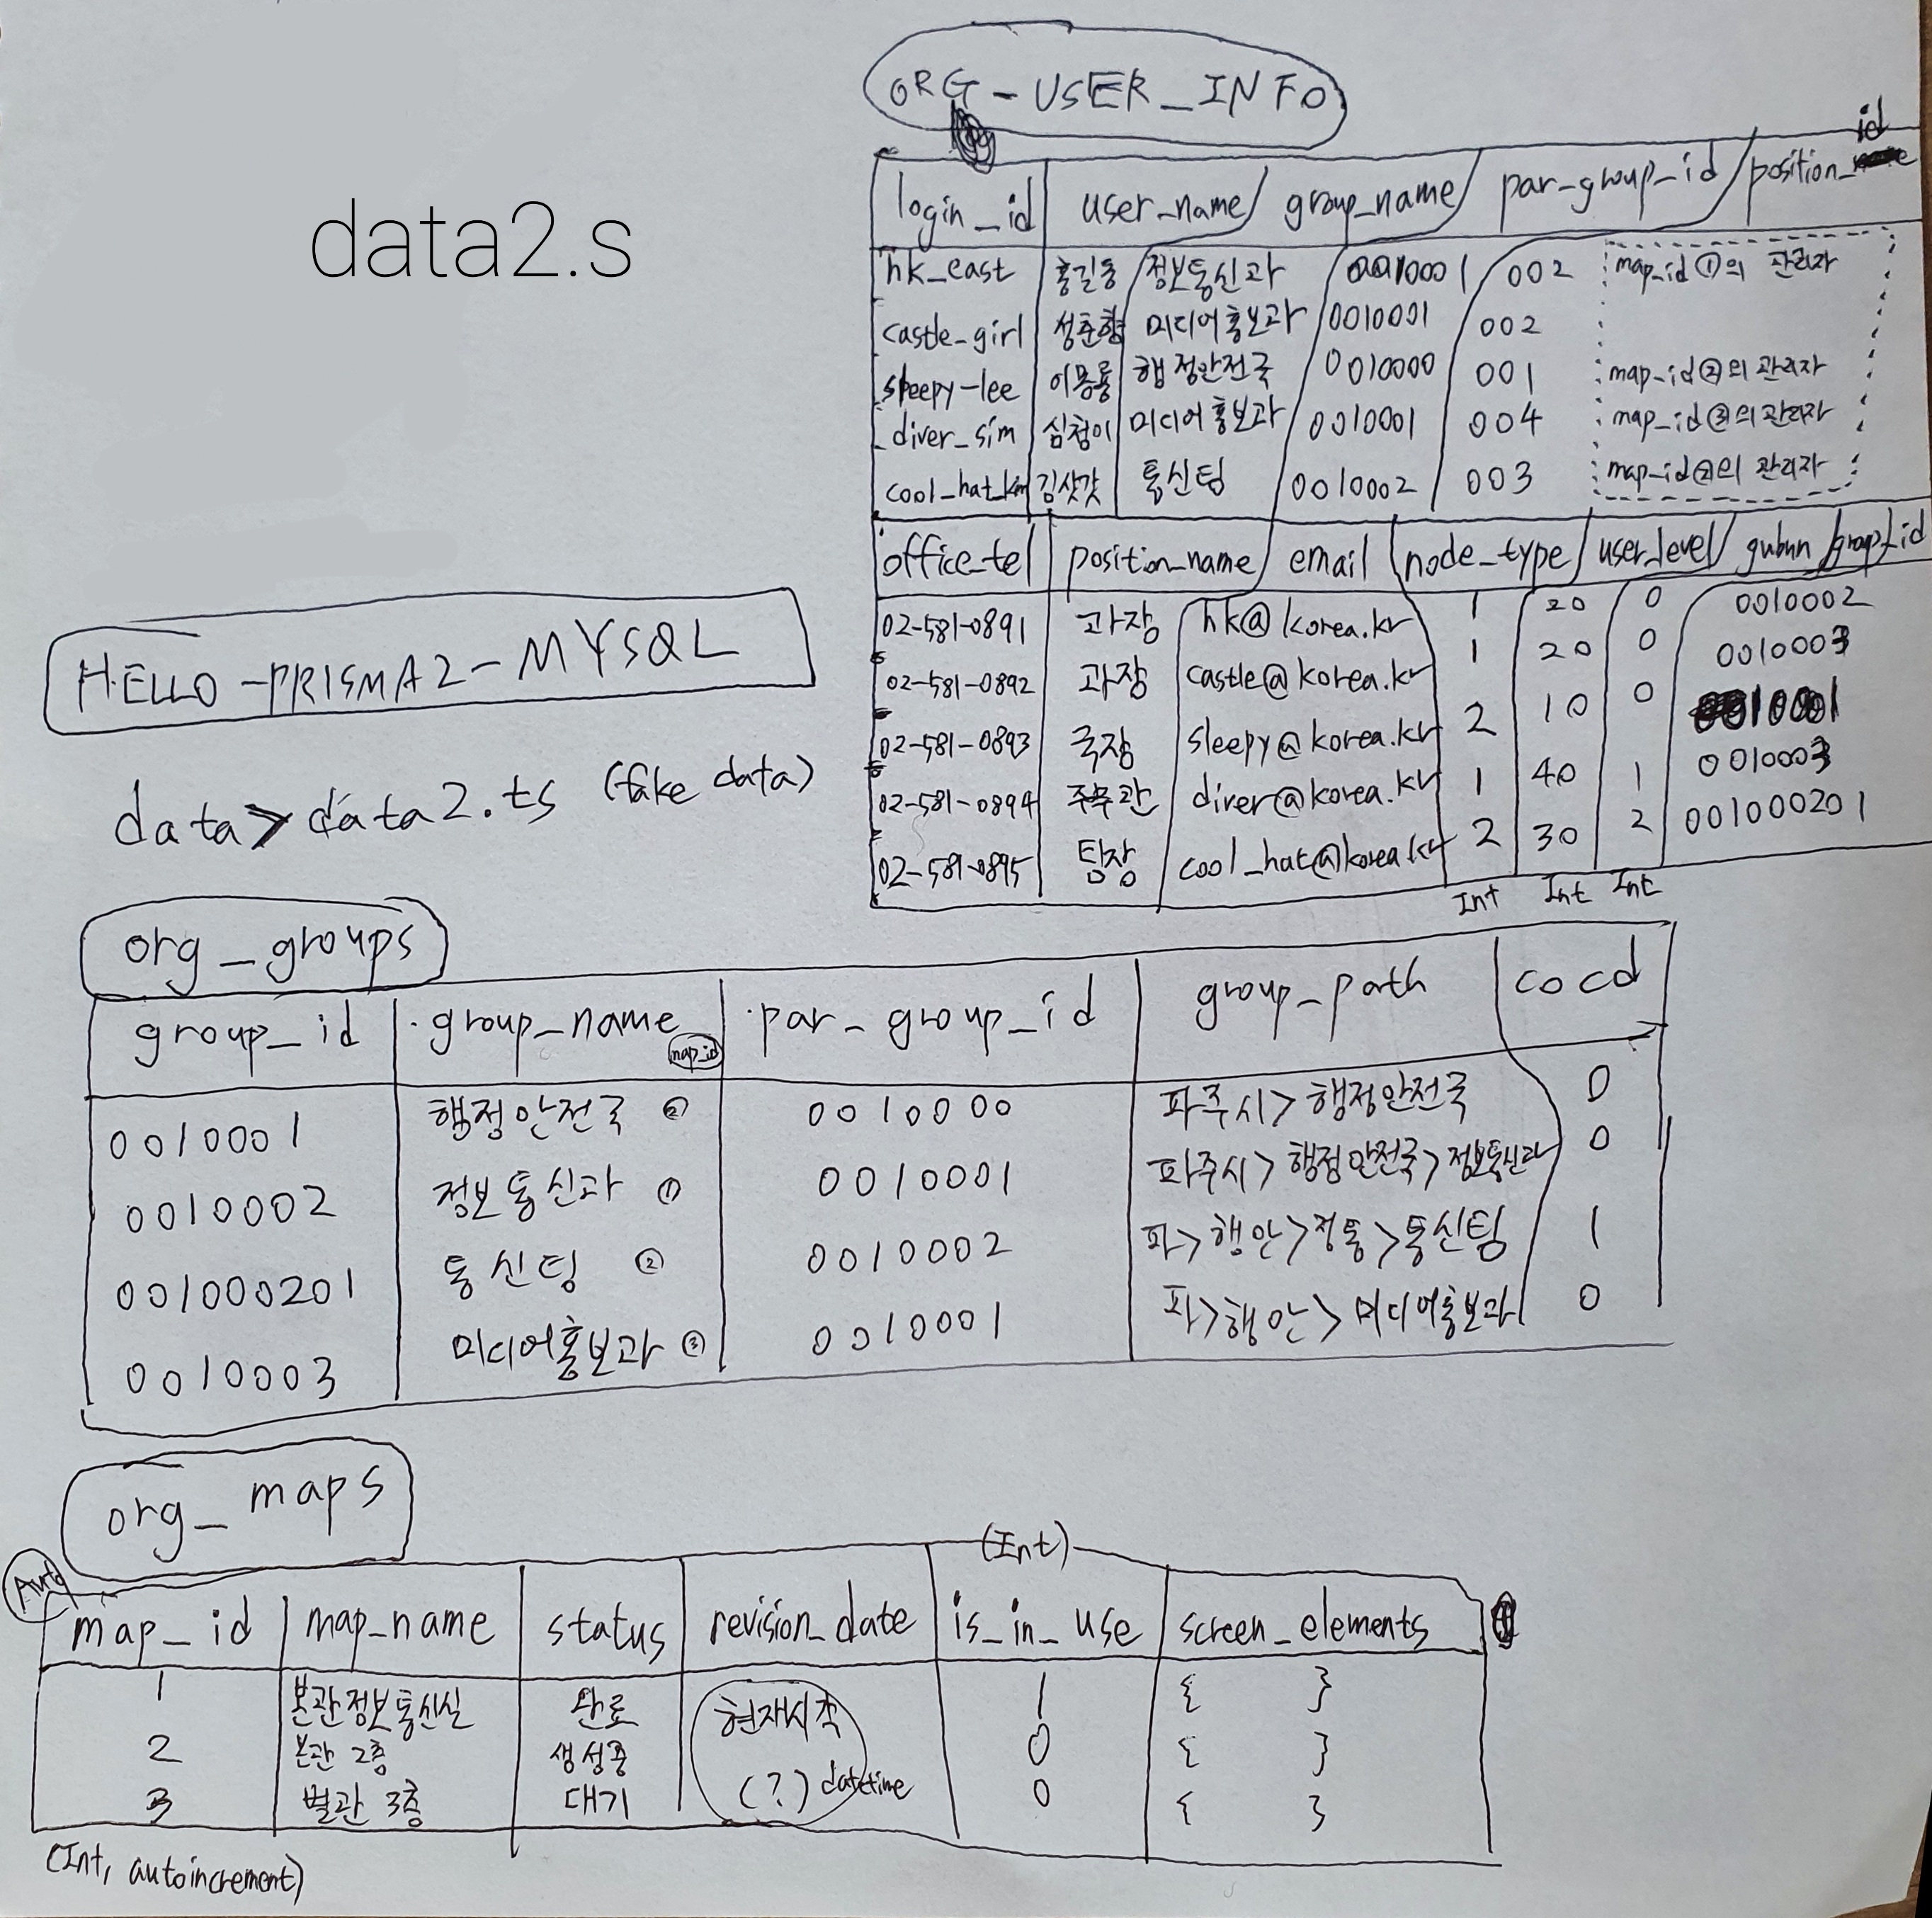 ORG-USER_INFO
data2.s
id
login_id user_name group_name par-group-id position_
hk_east 홍길동 정보통신과 0010001 002 map_id ①의 관리자
castle-girl 성춘향 미디어홍보과 0010001 002
sleepy-lee 이몽룡 행정안전국 0010000 001 map_id ②의 관리자
diver_sim 심청이 미디어홍보과 0010001 004 map_id ③의 관리자
cool_hat_kim 김삿갓 통신팀 0010002 003 map_id ②의 관리자
office_tel position_name email node_type user_level gubun group_id
02-581-0891 과장 hk@korea.kr 1 20 0 0010002
02-581-0892 과장 castle@korea.kr 1 20 0 0010003
02-581-0893 국장 sleepy@korea.kr 2 10 0 0010001
02-581-0894 주무관 diver@korea.kr 1 40 1 0010003
02-581-0895 팀장 cool_hat@korea.kr 2 30 2 001000201
Int Int Int
HELLO-PRISMA2-MYSQL
data>data2.ts (fake data)
org_groups
group_id group_name par_group_id group_path cocd
map_id
0010001 행정안전국 ② 0010000 파주시>행정안전국 0
0010002 정보통신과 ① 0010001 파주시>행정안전국>정보통신과 0
001000201 통신팀 ② 0010002 파>행안>정통>통신팀 1
0010003 미디어홍보과 ③ 0010001 파>행안>미디어홍보과 0
org_maps
(Int)
Auto
map_id map_name status revision_date is_in_use screen_elements
1 본관정보통신실 완료 현재시각 1 { }
2 본관 2층 생성중 0 { }
3 별관 3층 대기 (?) datetime 0 { }
(Int, autoincrement)